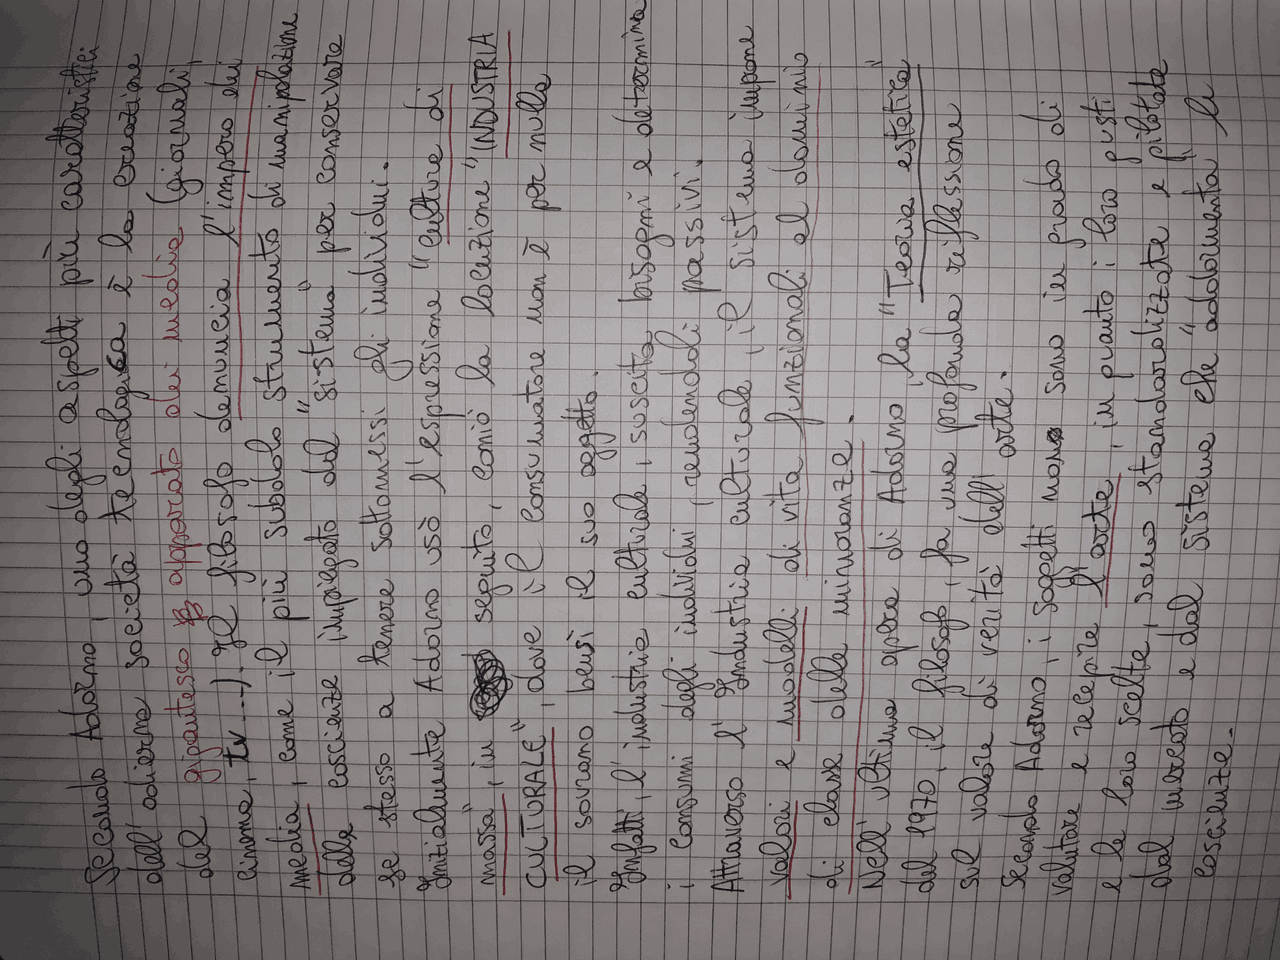 Secondo Adorno, uno degli aspetti più caratteristici
dell'odierna società tecnologica è la creazione
del gigantesco apparato dei media (giornali,
cinema, tv...). Il filosofo denuncia l'impero dei
media, come il più subdolo strumento di manipolazione
delle coscienze impiegato dal "sistema" per conservare
se stesso e tenere sottomessi gli individui.
Inizialmente Adorno usò l'espressione "cultura di
massa", in seguito, coniò la locuzione "INDUSTRIA
CULTURALE", dove il consumatore non è per nulla
il sovrano bensì il suo oggetto.
Infatti, l'industria culturale, suscita bisogni e determina
i consumi degli individui, rendendoli passivi.
Attraverso l'Industria culturale, il sistema impone
valori e modelli di vita funzionali al dominio
di classe delle minoranze.
Nell'ultima opera di Adorno, la "Teoria estetica"
del 1970, il filosofo, fa una profonda riflessione
sul valore di verità dell'arte.
Secondo Adorno, i soggetti non sono in grado di
valutare e recepire l'arte, in quanto i loro gusti
e le loro scelte, sono standardizzate e pilotate
dal mercato e dal sistema che "addormenta" le
coscienze.